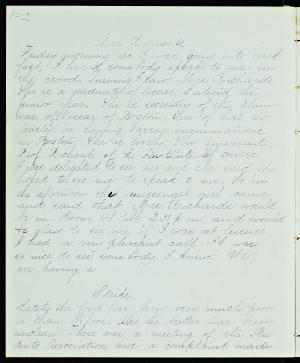 142.
Mrs. Richards.
Friday morning as I was going into break
fast, I heard somebody speak to me in
the crowd. Turning I saw Mrs. Richards
She is a graduate of Vassar. I entered the
junior year. She is secretary of the Alum
nae of Vassar of Boston. One of
in having Vassar examinations
in Boston. She is lovely. She married
Prof. Richards of the Institute of course
I was delighted to see her and she said she
hoped to see me to speak to me, so in
the afternoon the messenger girl came
and said that Mrs Richards would
be in Room A till 2.30 p m and would
be glad to see me if I was at leisure
I had a very pleasant call. It was
so nice to see somebody I knew. We
are having a
Strike.
Lately the food has been very much poor
er than before. All the butter has been
unclean. There was a meeting of the Stu
dents Association and a complaint made